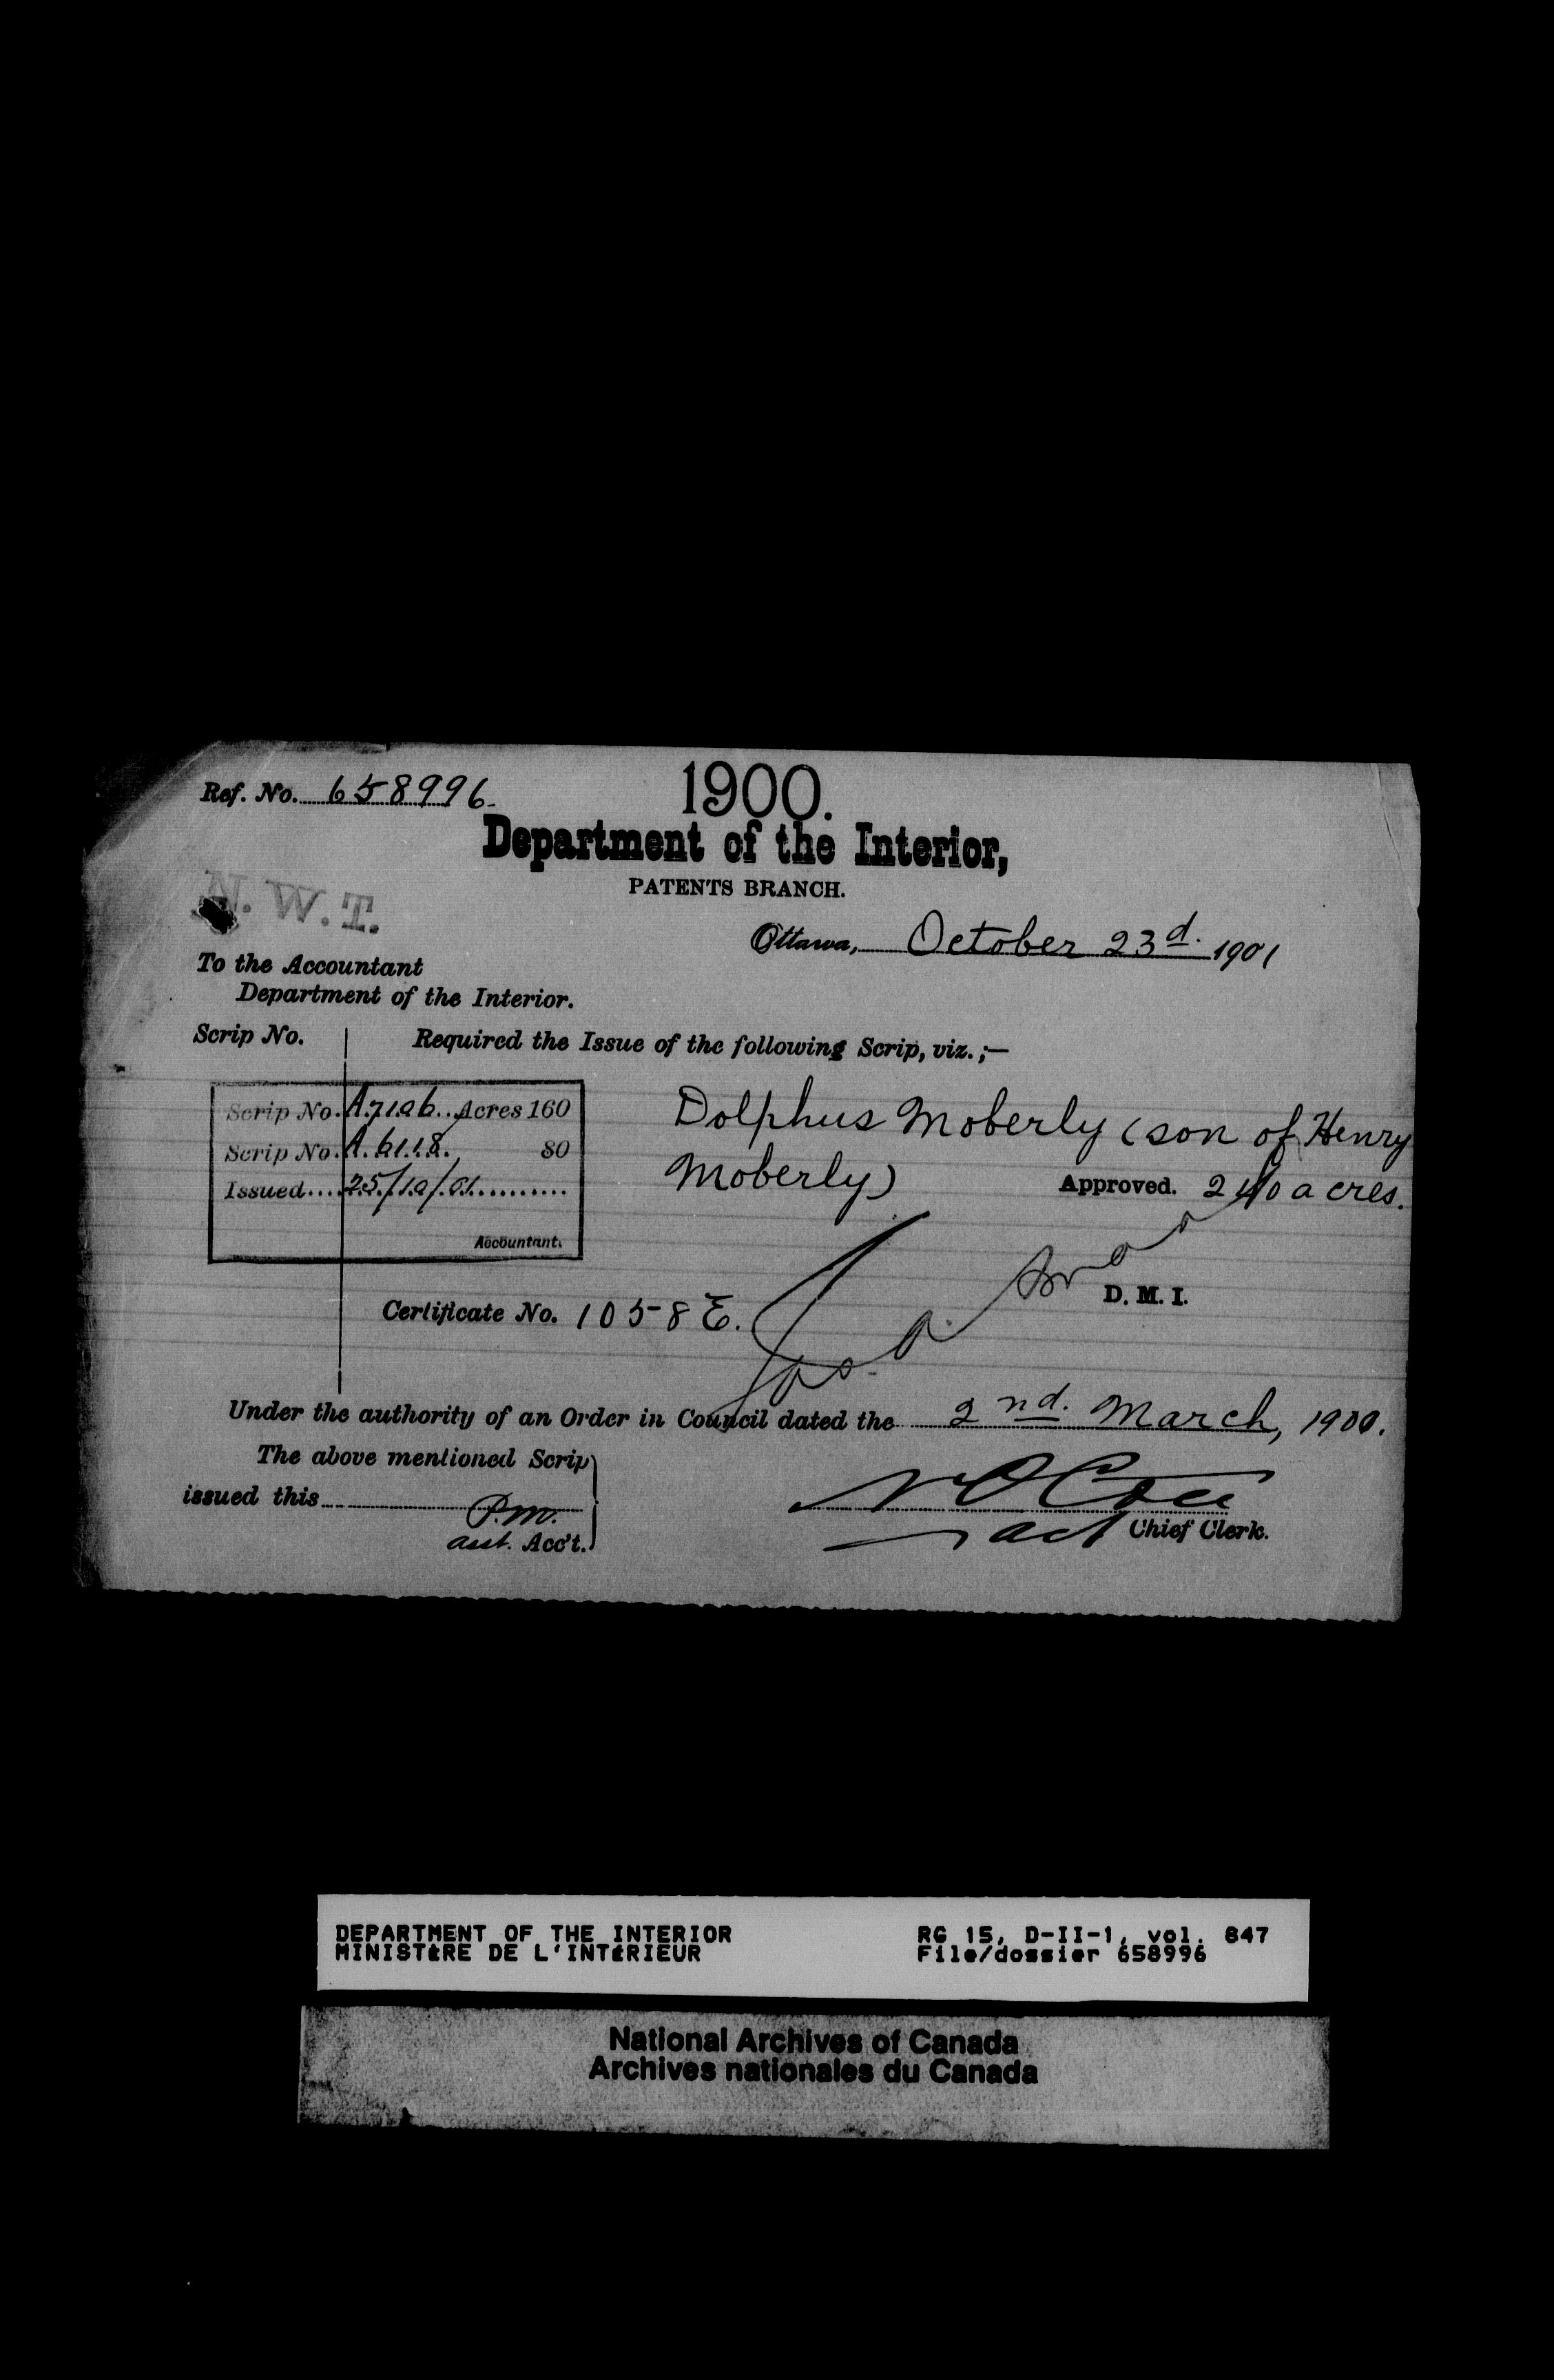 Ref. No. 658996.
1900.
Department of the Interior,
PATENTS BRANCH.
N. W. T.
Ottawa, October 23d. 1901
To the Accountant
Department of the Interior.
Scrip No.
Required the Issue of the following Scrip, viz. ;—
Scrip No. A.7106. Acres 160
Scrip No. A.6118. 80
Issued.... 25/10/01..........
Accountant.
Dolphus Moberly (son of Henry
Moberly)
Approved. 240 acres.
D. M. I.
Certificate No. 1058 E.
Under the authority of an Order in Council dated the 2nd. March, 1900.
The above mentioned Scrip
issued this
P.M.
Acc't.
Act Chief Clerk.
DEPARTMENT OF THE INTERIOR
MINISTÈRE DE L'INTÉRIEUR
RG 15, D-II-1, vol. 847
File/dossier 658996
National Archives of Canada
Archives nationales du Canada